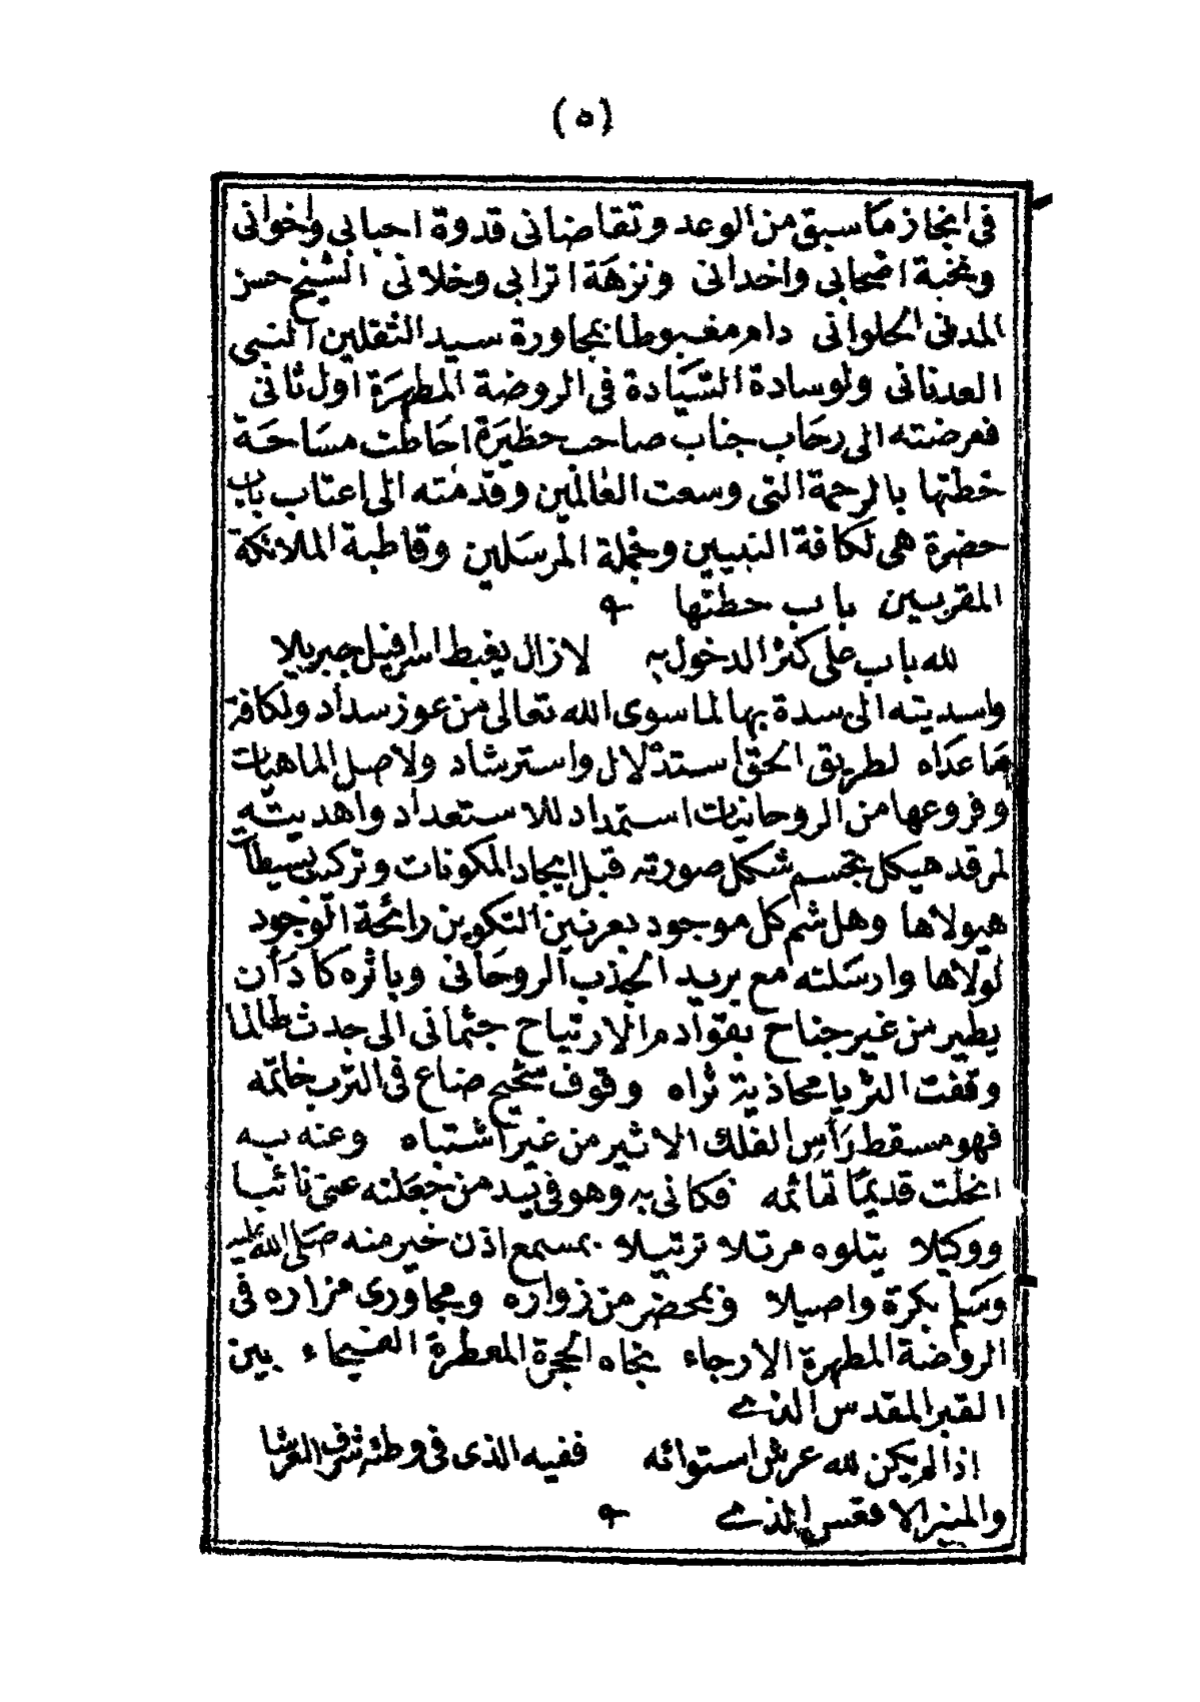 (٥)
فى انجاز ماسبق من الوعد وتقاضانى قدوة احبابى واخوانى
ونخبة اصحابى واخدانى ونزهة اترابى وخلانى الشيخ حسن
المدنى الحلوانى دام مغبوطا بمجاورة سيد الثقلين النبى
العدنانى ولوسادة السّيَادة فى الروضة المطهرَة اول ثانى
فعرضته الى رحَاب جناب صاحب حظيرَة احَاطت مسَاحَة
خطتها بالرحمة التى وسعت العالمين وقدمته الى اعتاب باب
حضرة هى لكافة النبيين وجملة المرسَلين وقاطبة الملائكة
المقربين باب حطتها
لله باب على كنز الدخول به لازال يغبط اسرافيل جبريلا
واسديته الى سدة بها لما سوى الله تعالى من عوز سداد ولكافة
مَاعدَاه لطريق الحق استدلال واسترشاد ولاصل الماهيات
وفروعها من الروحانيات استمداد للاستعداد واهديته
لمرقد هيكل تجسم شكل صورته قبل ايجاد المكونات وتركب بسيطات
هيولاها وهل شم كل موجود بعرنين التكوين رائحة الوجود
لولاها وارسَلته مع بريد الجذب الروحَانى وباثره كادَ أن
يطير من غير جناح بقوادم الارتياح جثمانى الى جدث طالما
وقفت الثريا محاذية ثراه وقوف شحيح ضاع فى الترب خاتمه
فهو مسقط رَأس الفلك الاثير من غير اشتباه وعنه به
انحلت قديمًا تمائمه فكانى به وهو فى يد من جعَلته عنى نائبا
ووكيلا يتلوه مرتلا ترتيلا بمسمع اذن خير منه صَلى الله عليه
وسَلم بكرة واصيلا وبمحضر من زواره ومجاورى مزاره فى
الروضة المطهرة الارجاء تجاه الحجرة المعطرة الفيحاء بين
القبر المقدس الذى
اذا لم يكن لله عرش استوائه ففيه الذى فى وطئه شرف العرشا
والمنبر الاقعس الذى